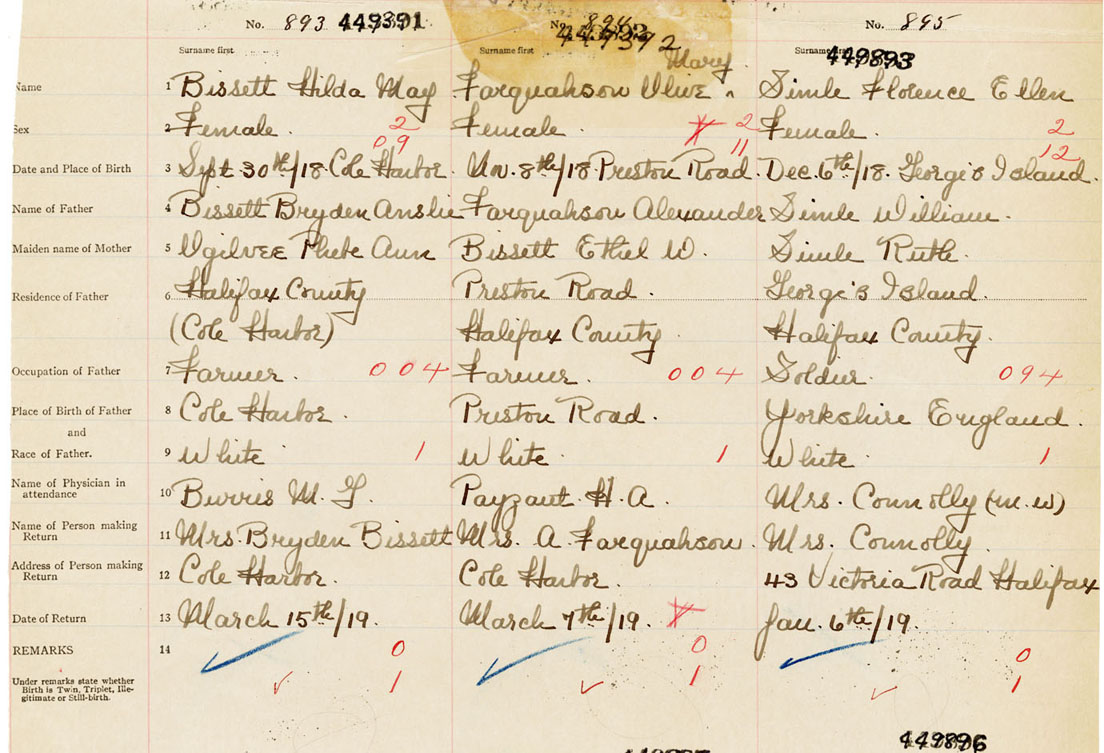 No. 893 449391 No. 894 449392 No. 895
Surname first Surname first Surname first 449393
Mary
Name 1 Bissett Hilda May Farquahson Olive ^ Simle Florence Ellen
Sex 2 Female. 2 Female. 2 Female. 2
09 11 12
Date and Place of Birth 3 Sept. 30th/18. Cole Harbor. Nov. 8th/18. Preston Road. Dec. 6th/18. George's Island.
Name of Father 4 Bissett Bryden Anslie Farquahson Alexander Simle William.
Maiden name of Mother 5 Ogilvee Phebe Ann Bissett Ethel W. Simle Ruth.
Residence of Father 6 Halifax County Preston Road. George's Island.
(Cole Harbor) Halifax County. Halifax County.
Occupation of Father 7 Farmer. 004 Farmer. 004 Soldier. 094
Place of Birth of Father 8 Cole Harbor. Preston Road. Yorkshire England.
and
Race of Father. 9 White. 1 White. 1 White. 1
Name of Physician in
attendance 10 Burris M. G. Payzant H. A. Mrs. Connolly (m.w)
Name of Person making
Return 11 Mrs. Bryden Bissett Mrs. A. Farquahson. Mrs. Connolly.
Address of Person making
Return 12 Cole Harbor. Cole Harbor. 43 Victoria Road Halifax
Date of Return 13 March 15th/19. March 7th/19. Jan. 6th/19.
REMARKS 14 0 0 0
Under remarks state whether
Birth is Twin, Triplet, Ille-
gitimate or Still-birth.
1 1 1
449896